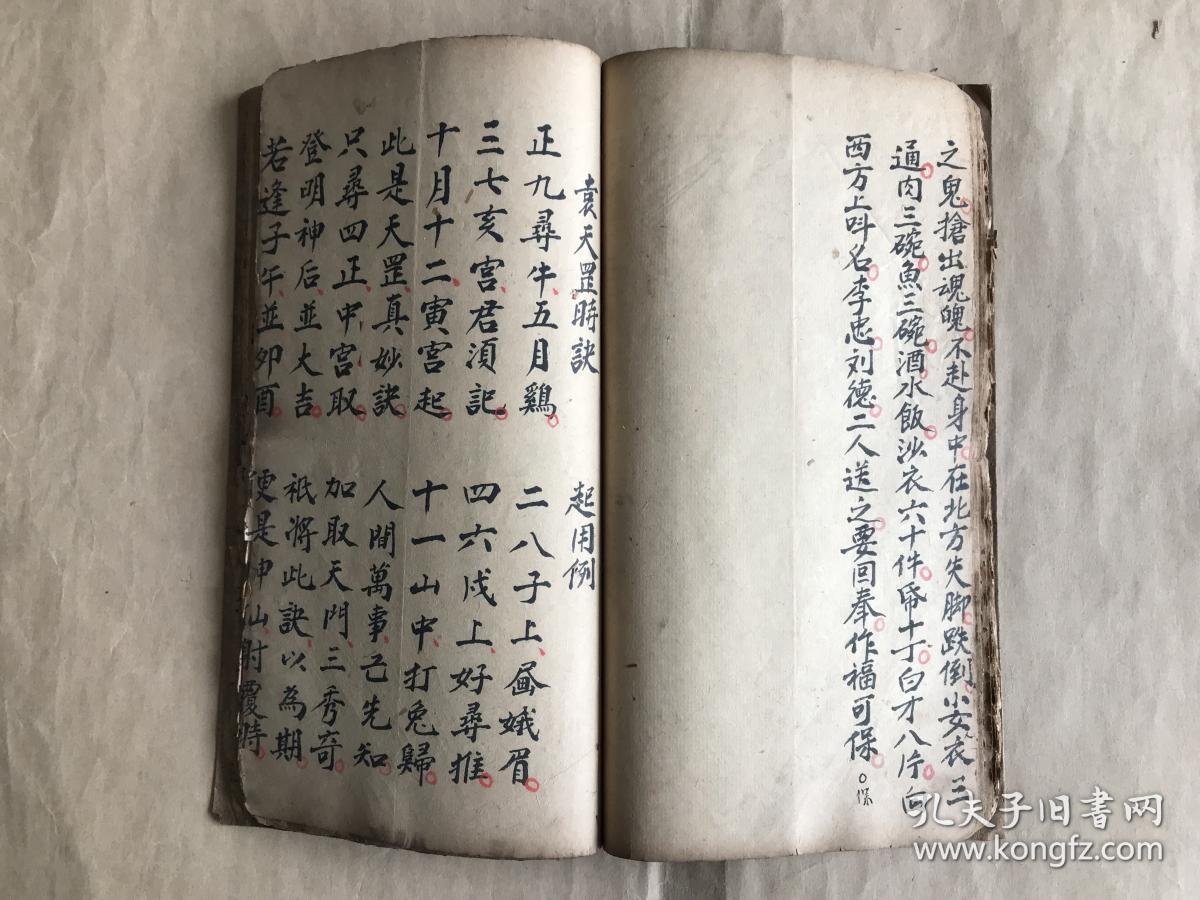 之鬼搶出魂魄不赴身中在北方失脚跌倒小女衣三
通肉三碗魚三碗酒水飯沙衣六十件帋十丁白才八片向
西方上呌名李忠刘德二人送之要回奉作福可保
保
袁天罡時訣 起用例
正九尋牛五月鷄 二八子上畵娥眉
三七亥宮君須記 四六戍上好尋推
十月十二寅宮起 十一山中打兔歸
此是天罡真妙訣 人間萬事己先知
只尋四正中宮取 加取天門三秀奇
登明神后並大吉 祇將此訣以為期
若逢子午並夘酉 便是神仙射覆時
孔夫子旧书网
www.kongfz.com